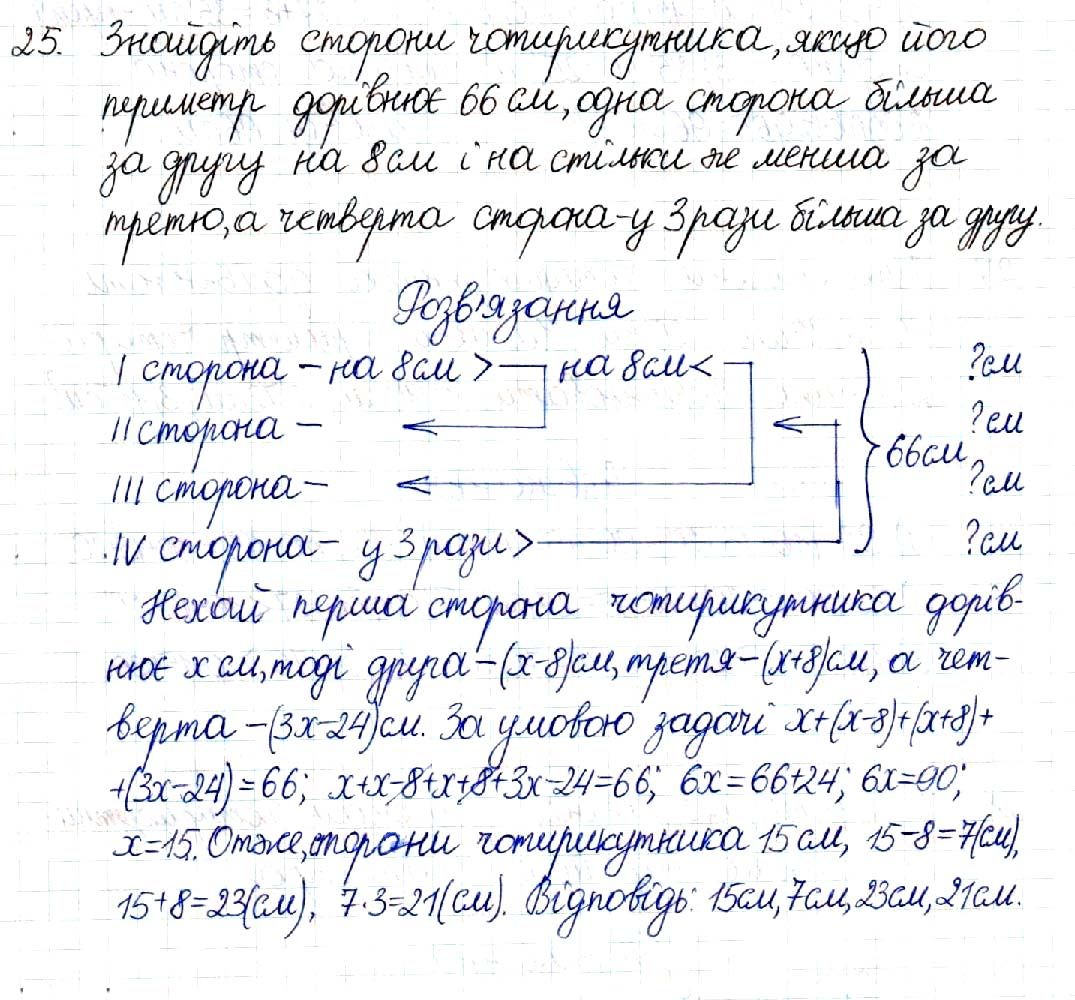 25. Знайдіть сторони чотирикутника, якщо його
периметр дорівнює 66 см, одна сторона більша
за другу на 8 см і на стільки же менша за
третю, а четверта сторона - у 3 рази більша за другу.
Розв'язання
I сторона - на 8 см > на 8 см < ? см
II сторона - ? см
66 см
III сторона - ? см
IV сторона - у 3 рази > ? см
Нехай перша сторона чотирикутника дорів-
нює x см, тоді друга - (x-8) см, третя - (x+8) см, а чет-
верта - (3x-24) см. За умовою задачі x+(x-8)+(x+8)+
+(3x-24)=66; x+x-8+x+8+3x-24=66; 6x=66+24; 6x=90;
x=15. Отже, сторони чотирикутника 15 см, 15-8=7(см),
15+8=23(см), 7·3=21(см). Відповідь: 15см, 7см, 23см, 21см.